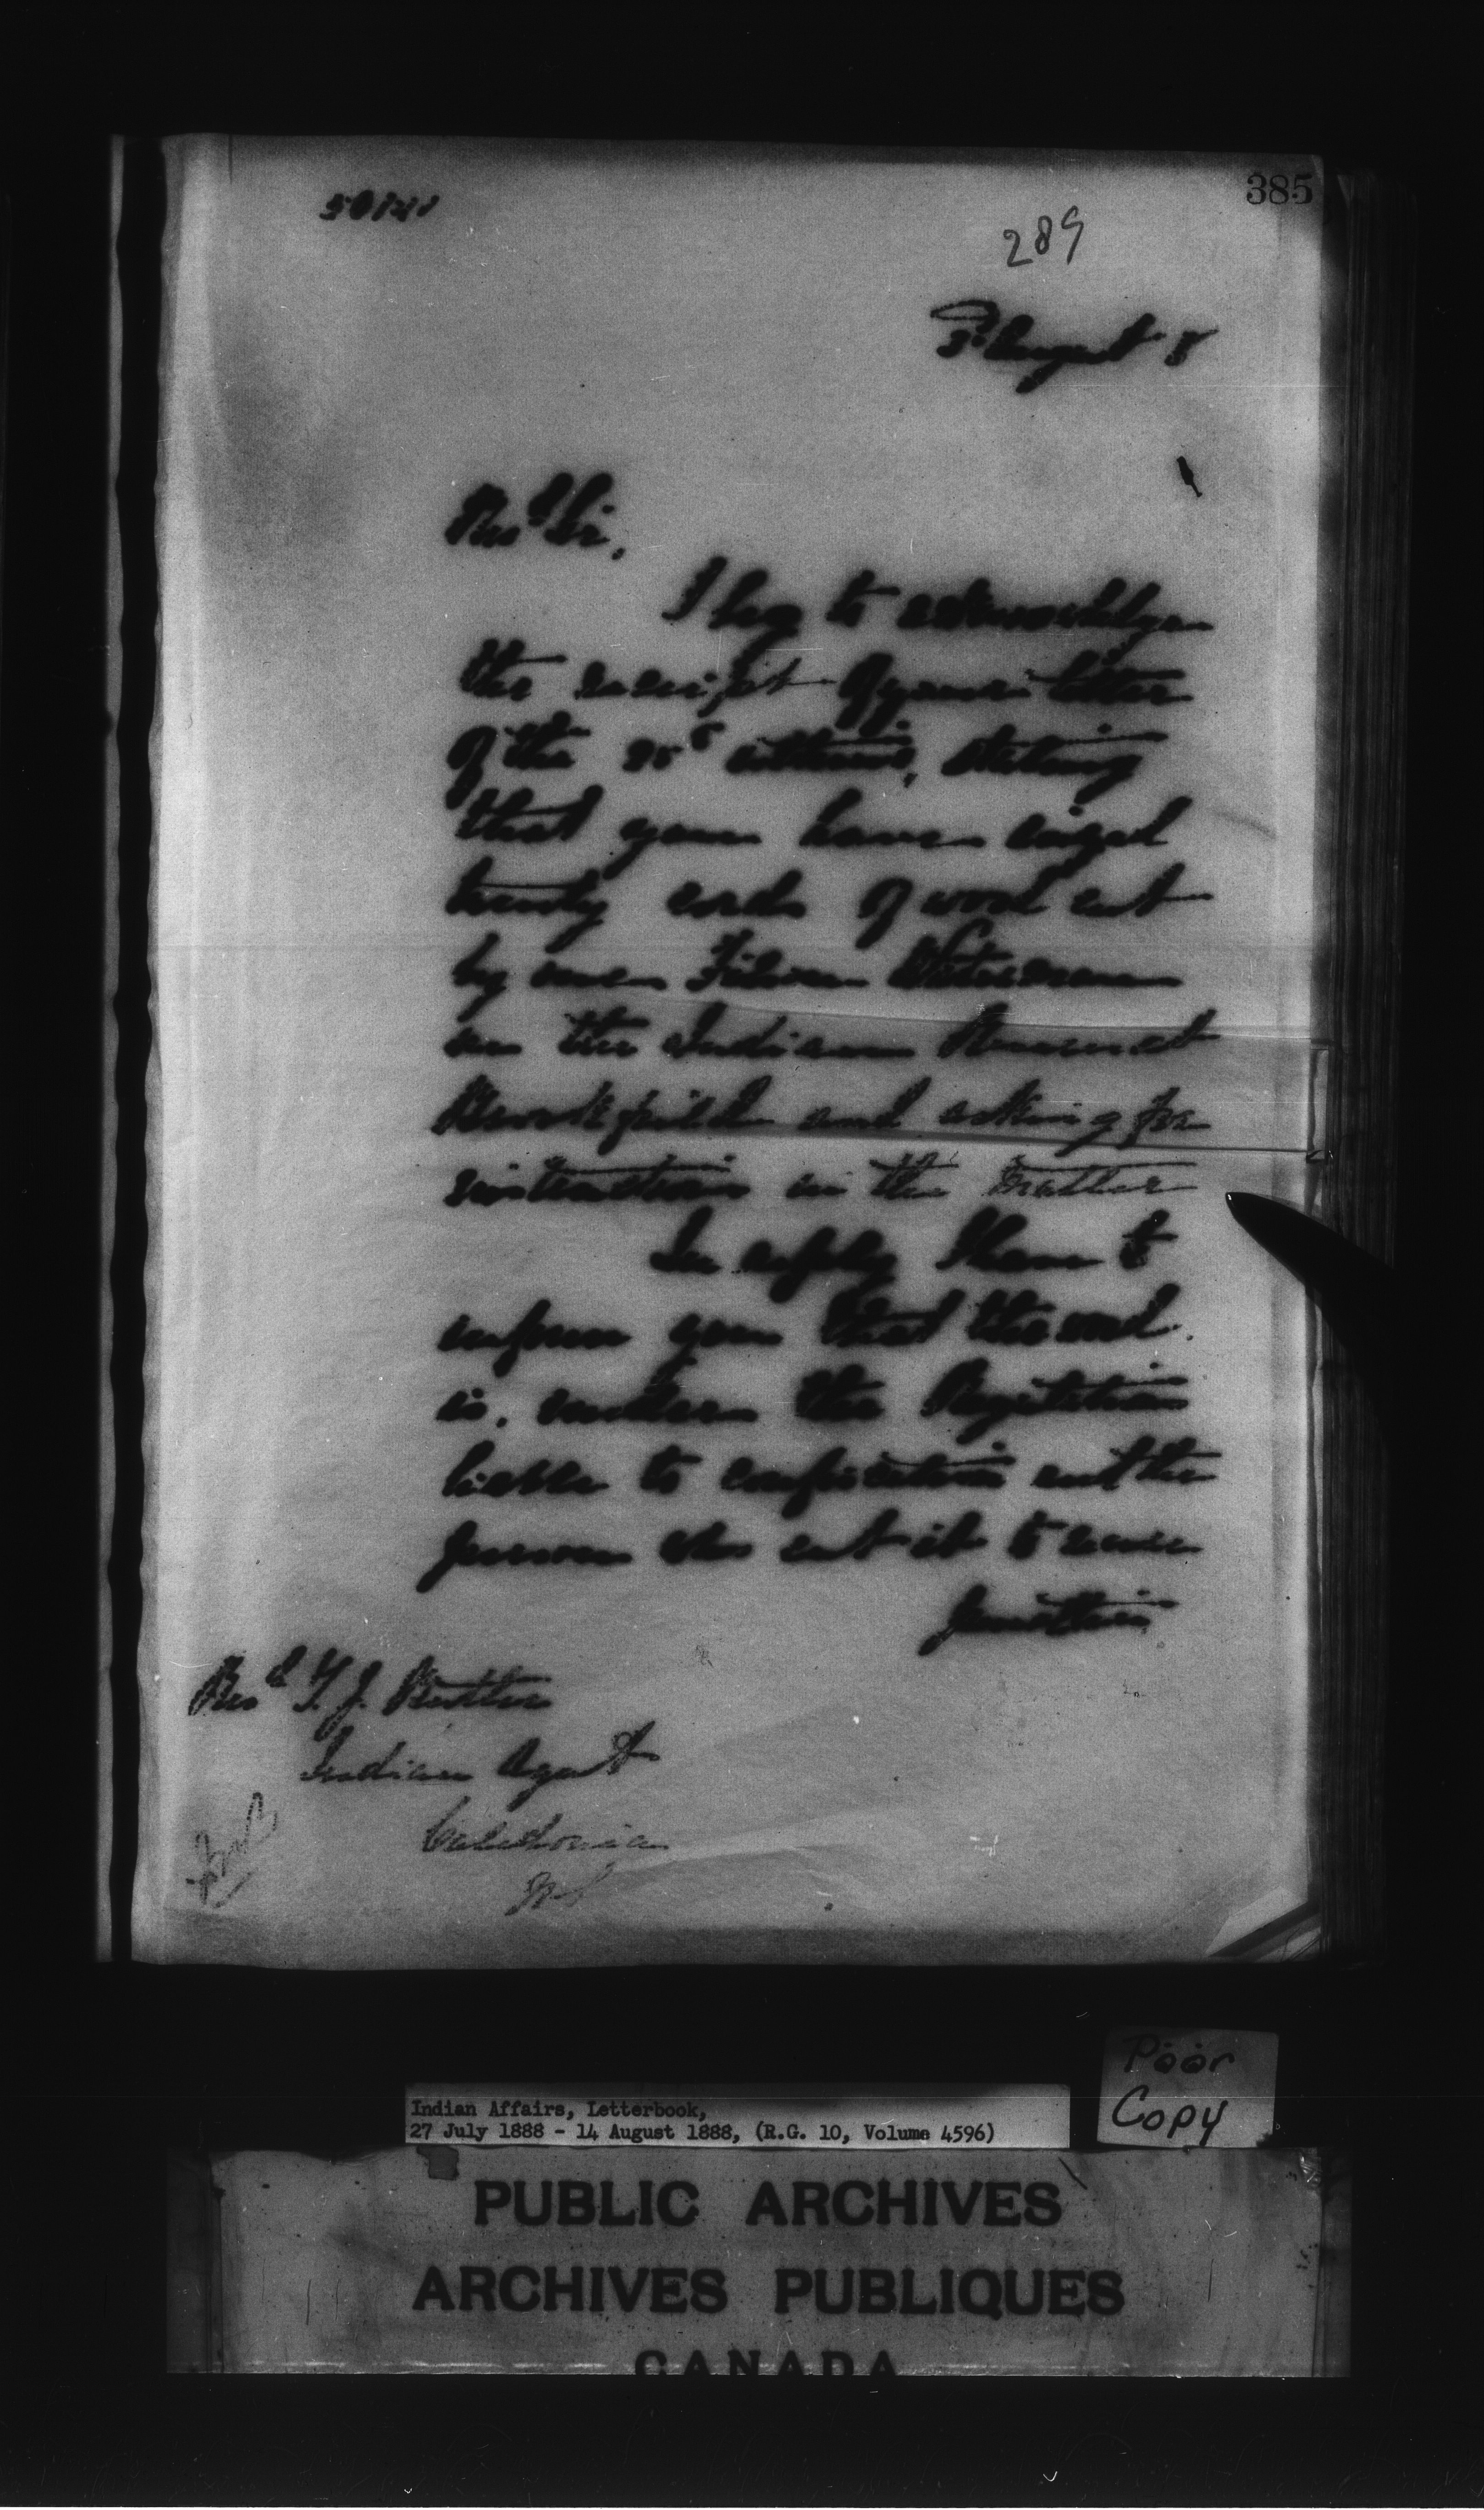 385
289
3 August 8
Revd Sir,
I beg to acknowledge
the receipt of your letter
of the 25th ultimo, stating
that you have seized
twenty cords of wood cut
by one
on the Indian Reserve at
Brookfield and asking for
instructions in the matter
In reply I have to
inform you that the wood
is, under the Regulations
liable to confiscation and the
person who cut it to
Revd T. J. Butler
Indian Agent
Caledonia
N.S
Poor
Copy
Indian Affairs, Letterbook,
27 July 1888 - 14 August 1888, (R.G. 10, Volume 4596)
PUBLIC ARCHIVES
ARCHIVES PUBLIQUES
CANADA